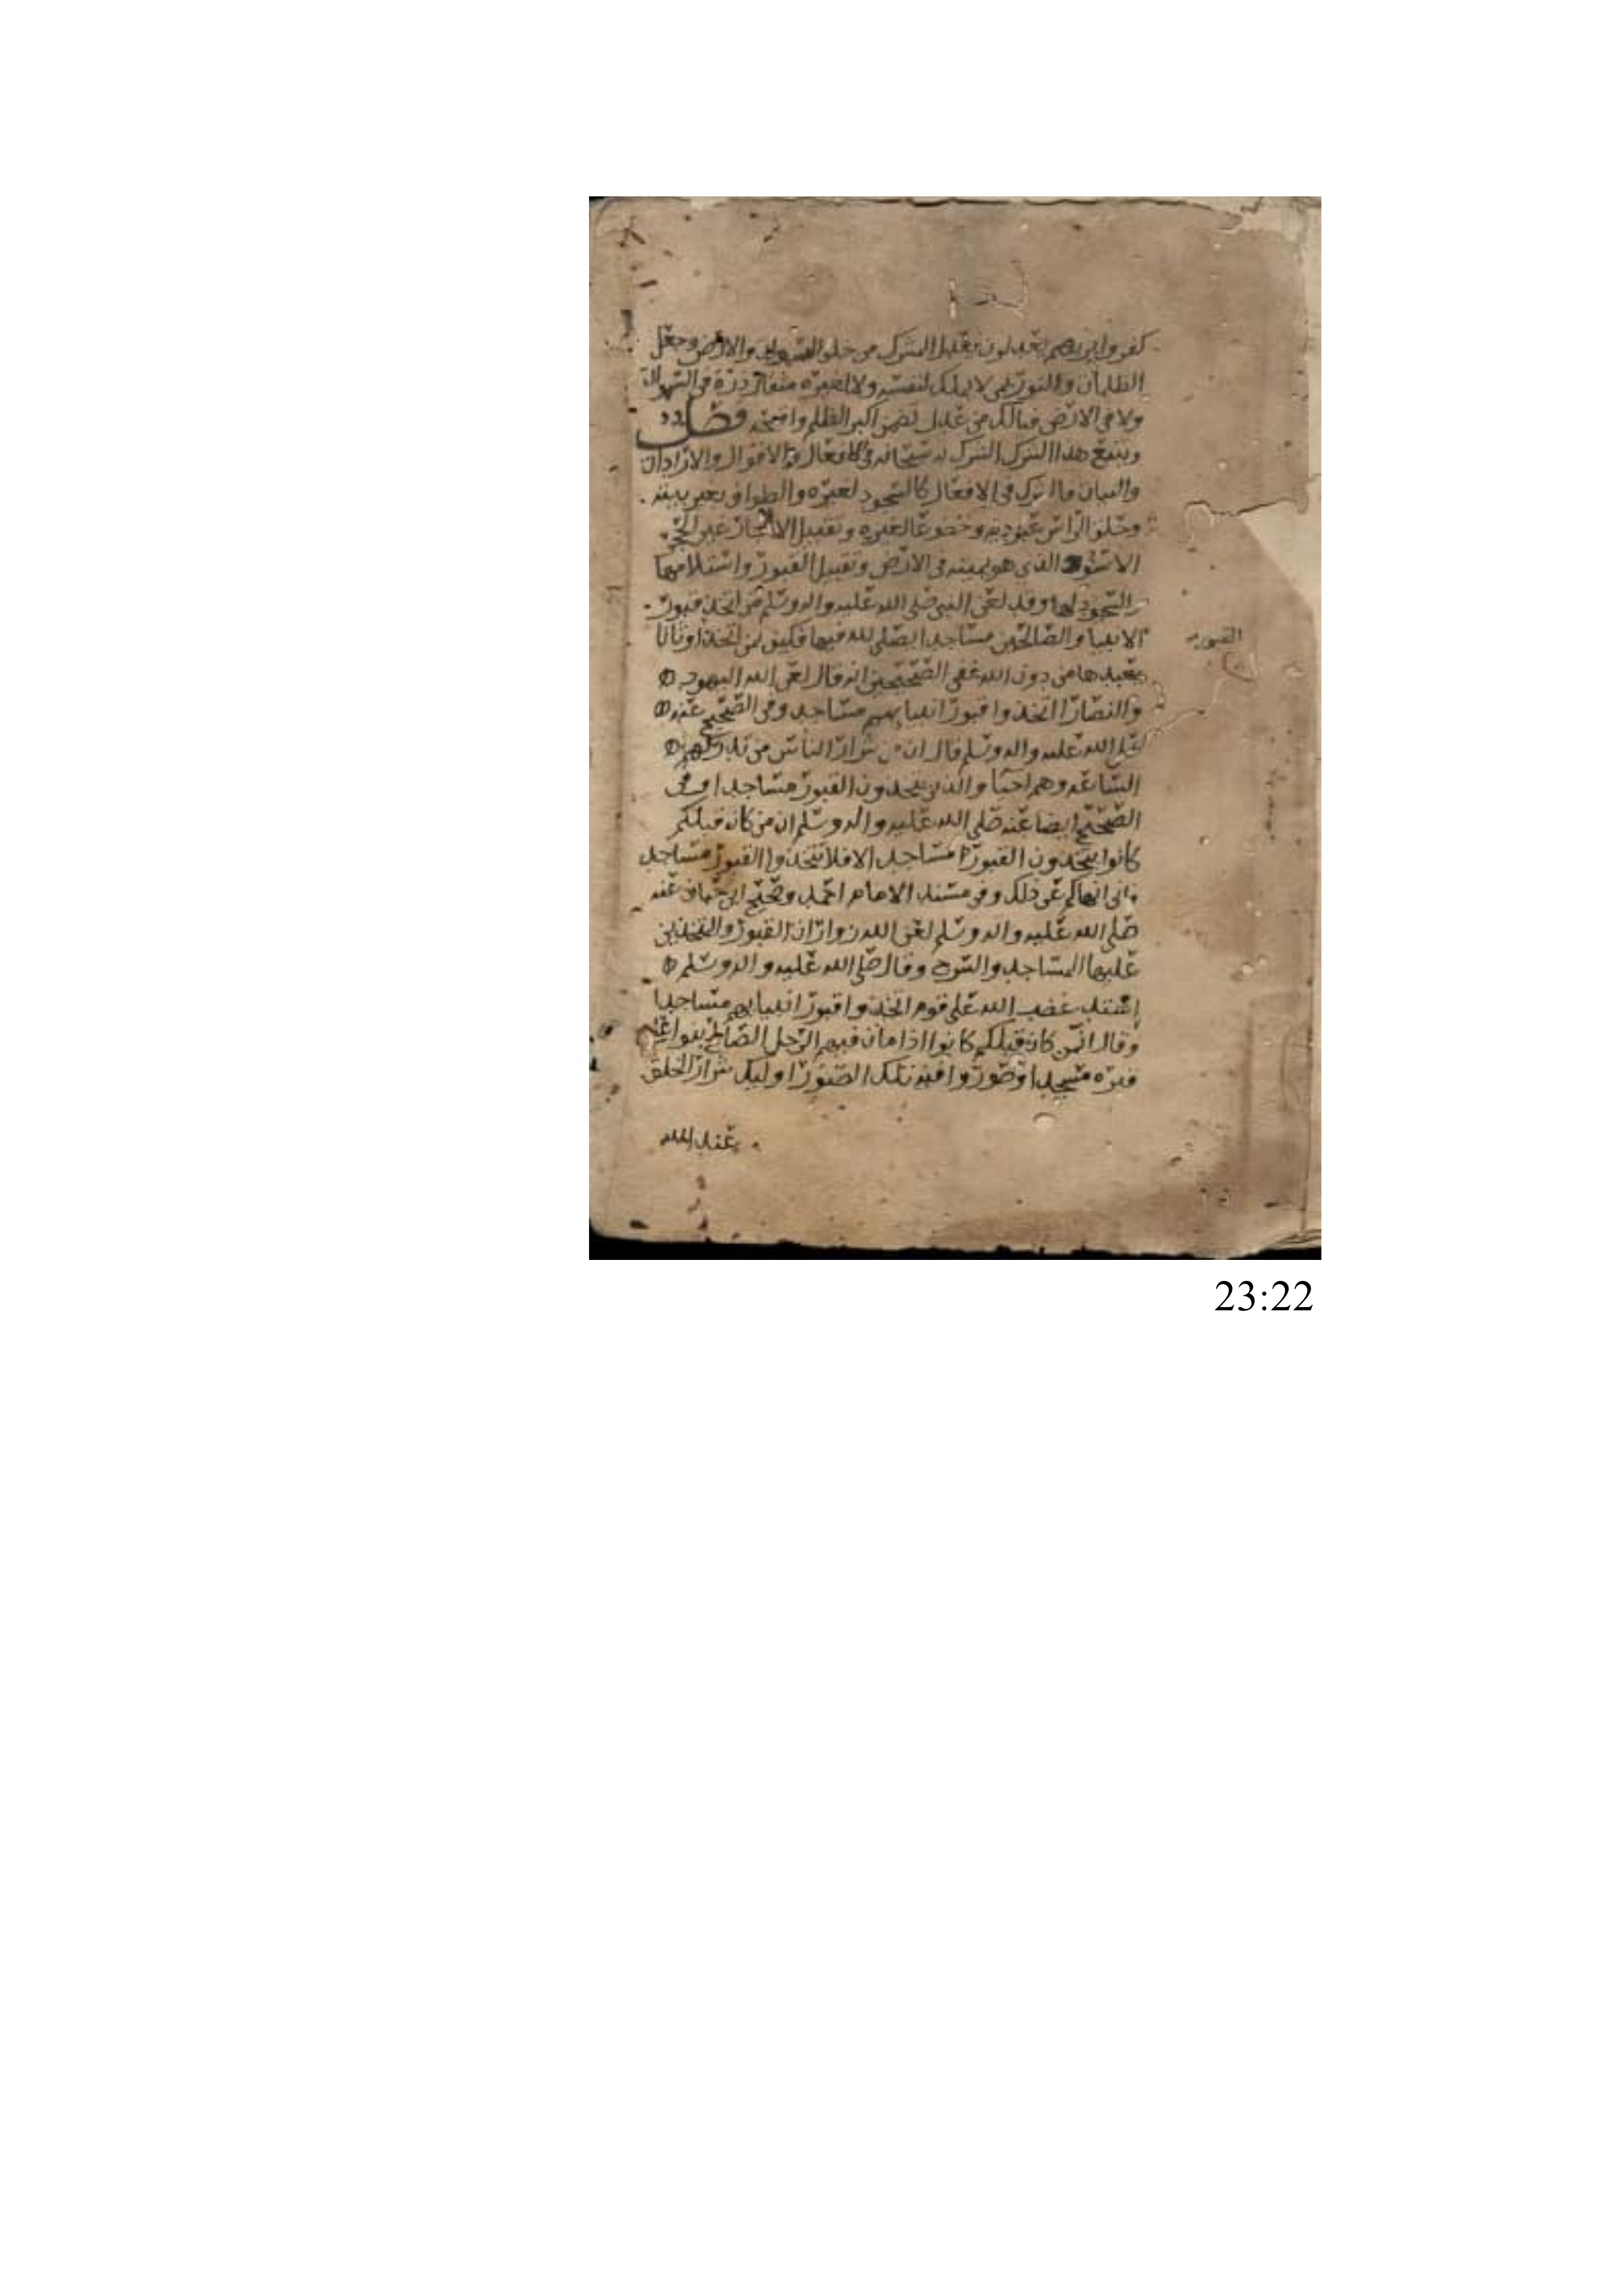 كفروا بربهم يعدلون فعدل المشرك من خلق السموات والارض وجعل
الظلمات والنور بمن لا يملك لنفسه ولا لغيره مثقال ذرة في السموات
ولا في الارض فيالك من عدل تضمن اكبر الظلم واقبحه فصل
ويتبع هذا الشرك الشرك به سبحانه في الافعال والاقوال والارادات
والنيات فالشرك في الافعال كالسجود لغيره والطواف بغير بيته
وحلق الراس عبودية وخضوعا لغيره وتقبيل الاحجار غير الحجر
الاسود الذي هو يمينه في الارض وتقبيل القبور واستلامها
والسجود لها وقد لعن النبي صلى الله عليه واله وسلم من اتخذ قبور
الانبيا والصالحين مساجدا يصلي لله فيها فكيف بمن اتخذ اوثانا
القبور
يعبدها من دون الله ففي الصحيحين انه قال لعن الله اليهود
والنصارا اتخذوا قبور انبيايهم مساجد وفي الصحيح عنه
صلى الله عليه واله وسلم قال ان من شرار الناس من تدركهم
الساعة وهم احيا والذين يتخذون القبور مساجدا وفي
الصحيح ايضا عنه صلى الله عليه واله وسلم ان من كان قبلكم
كانوا يتخذون القبور مساجد الا فلا تتخذوا القبور مساجد
اني انهاكم عن ذلك وفي مسند الامام احمد وصحيح ابن حبان عنه
صلى الله عليه واله وسلم لعن الله زوارات القبور والمتخذين
عليها المساجد والسرج وقال صلى الله عليه واله وسلم
اشتد غضب الله على قوم اتخذوا قبور انبيايهم مساجدا
وقال ان من كان قبلكم كانوا اذا مات فيهم الرجل الصالح بنوا على
قبره مسجدا وصوروا فيه تلك الصور اوليك شرار الخلق
عند الله
23:22